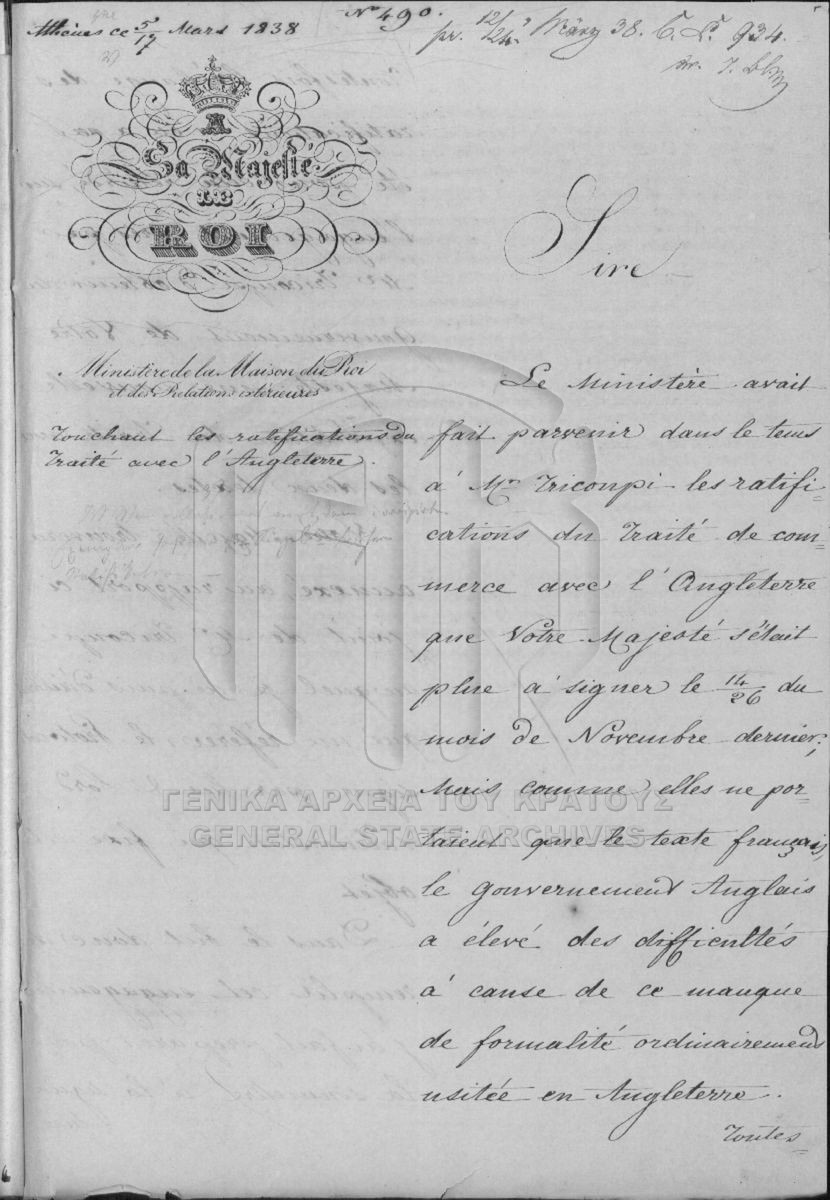 Athènes ce 5/17 Mars 1838
No 490.
pr. 12/24 März 38. C. No. 934.
A
Sa Majesté
LE
ROI
Sire
Ministère de la Maison du Roi
et des Relations extérieures
Touchant les ratifications du
Traité avec l'Angleterre.
Le Ministère avait
fait parvenir dans le tems
à Mr Tricoupi les ratifi-
cations du Traité de com-
merce avec l'Angleterre
que Votre Majesté s'était
plue à signer le 14/26 du
mois de Novembre dernier;
Mais comme elles ne por-
taient que le texte français,
le gouvernement Anglais
a élevé des difficultés
à cause de ce manque
de formalité ordinairement
usitée en Angleterre.
Toutes
ΓΕΝΙΚΑ ΑΡΧΕΙΑ ΤΟΥ ΚΡΑΤΟΥΣ
GENERAL STATE ARCHIVES